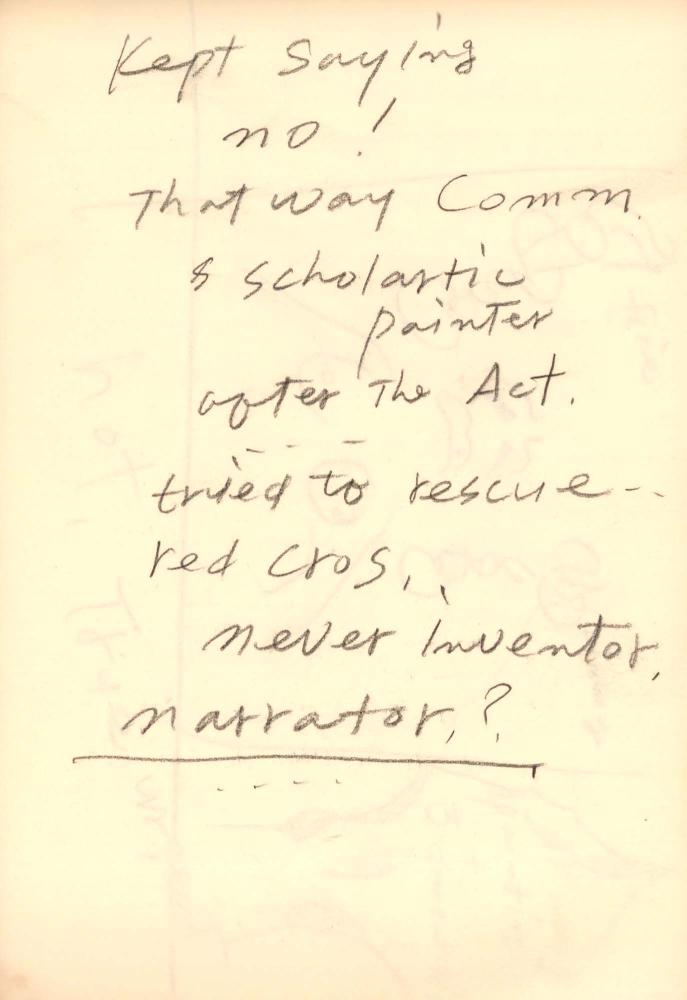 Kept Saying
no!
That way Comm.
& scholartic
painter
after The Act.
tried to rescue--
red cros,
never inventor,
narrator,?